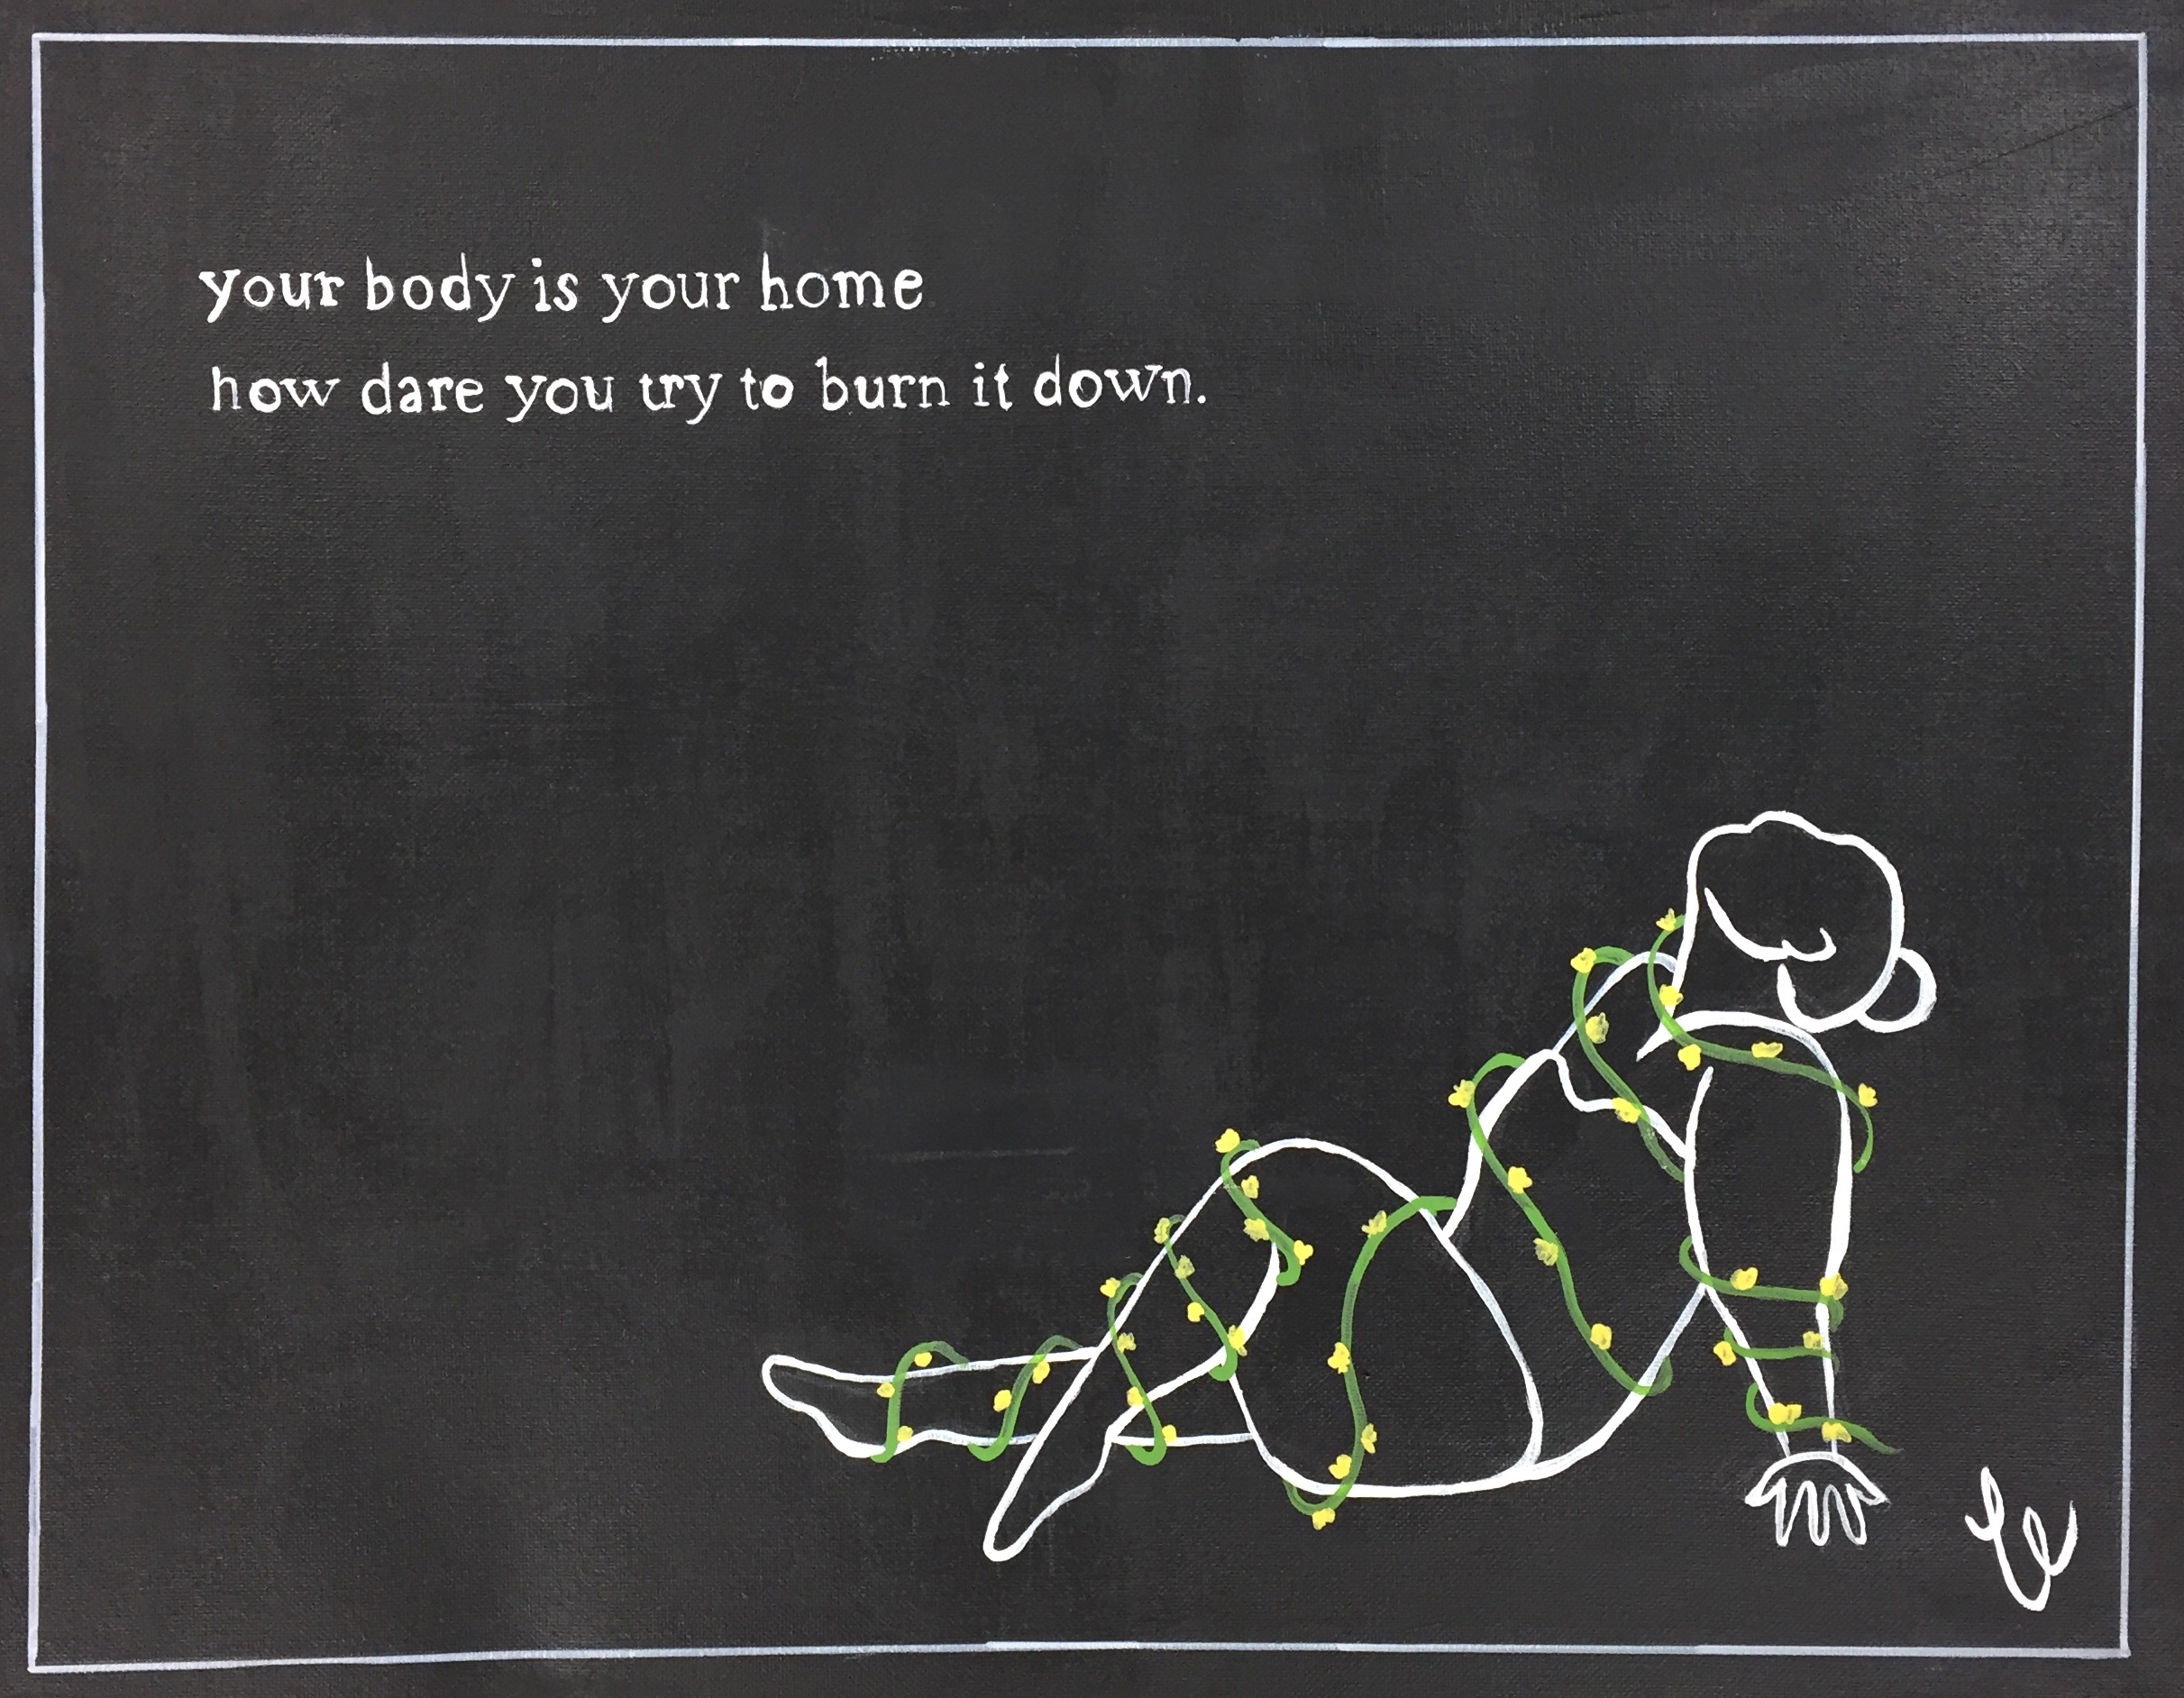 your body is your home
how dare you try to burn it down.